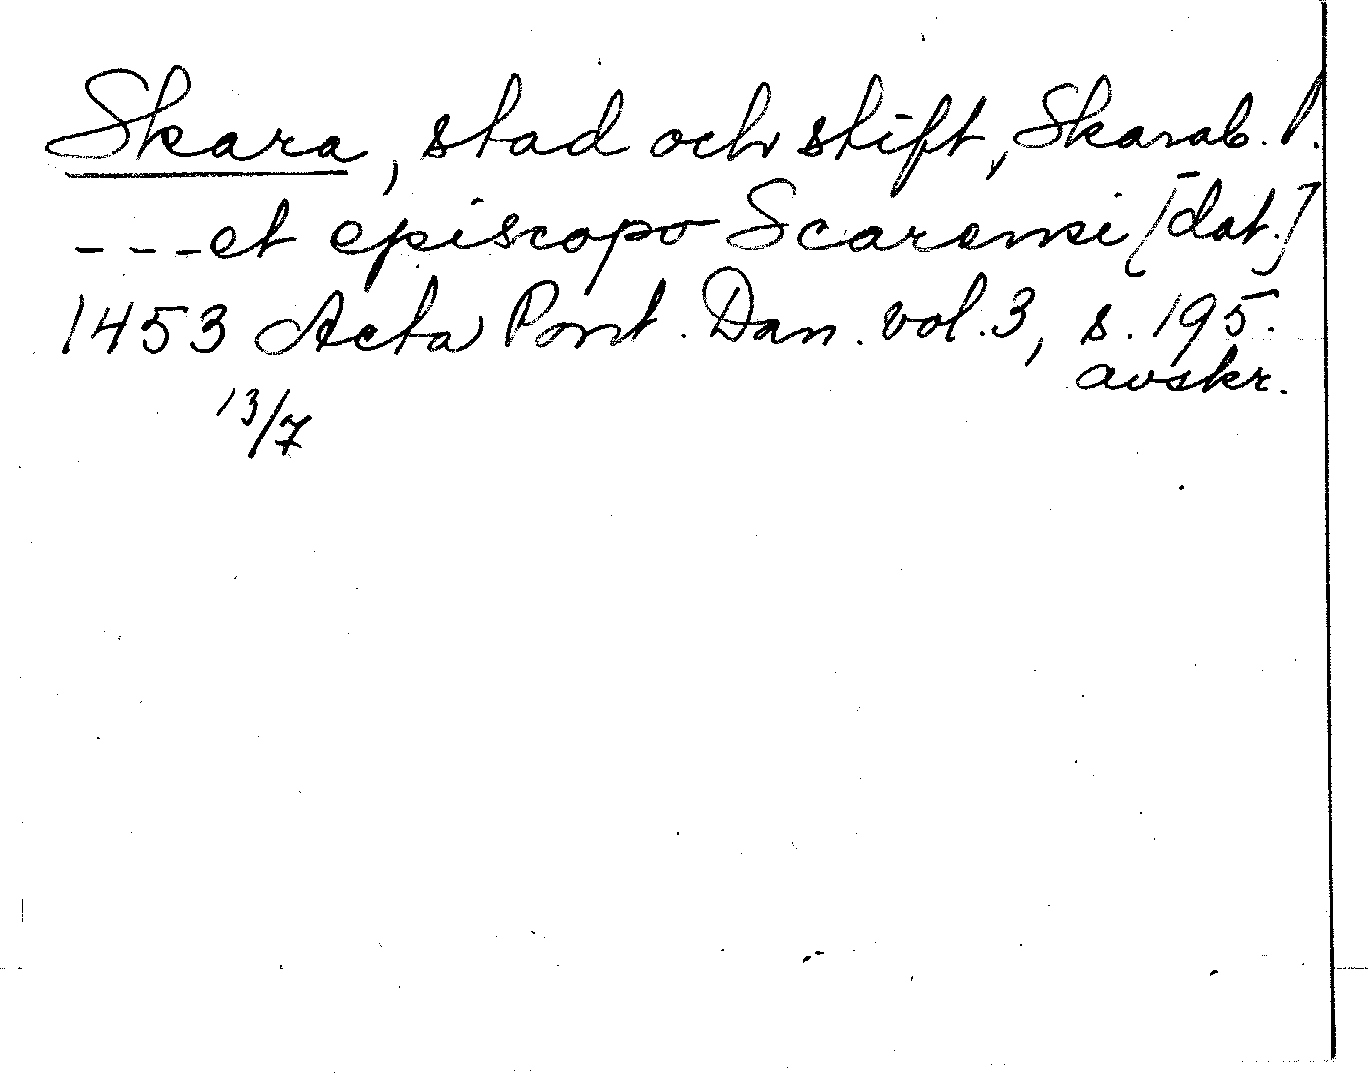 Skara, stad och stift, Skarab. l.
---et episcopo Scarensi [dat.]
1453 Acta Pont. Dan. vol. 3, s. 195.
avskr.
13/7